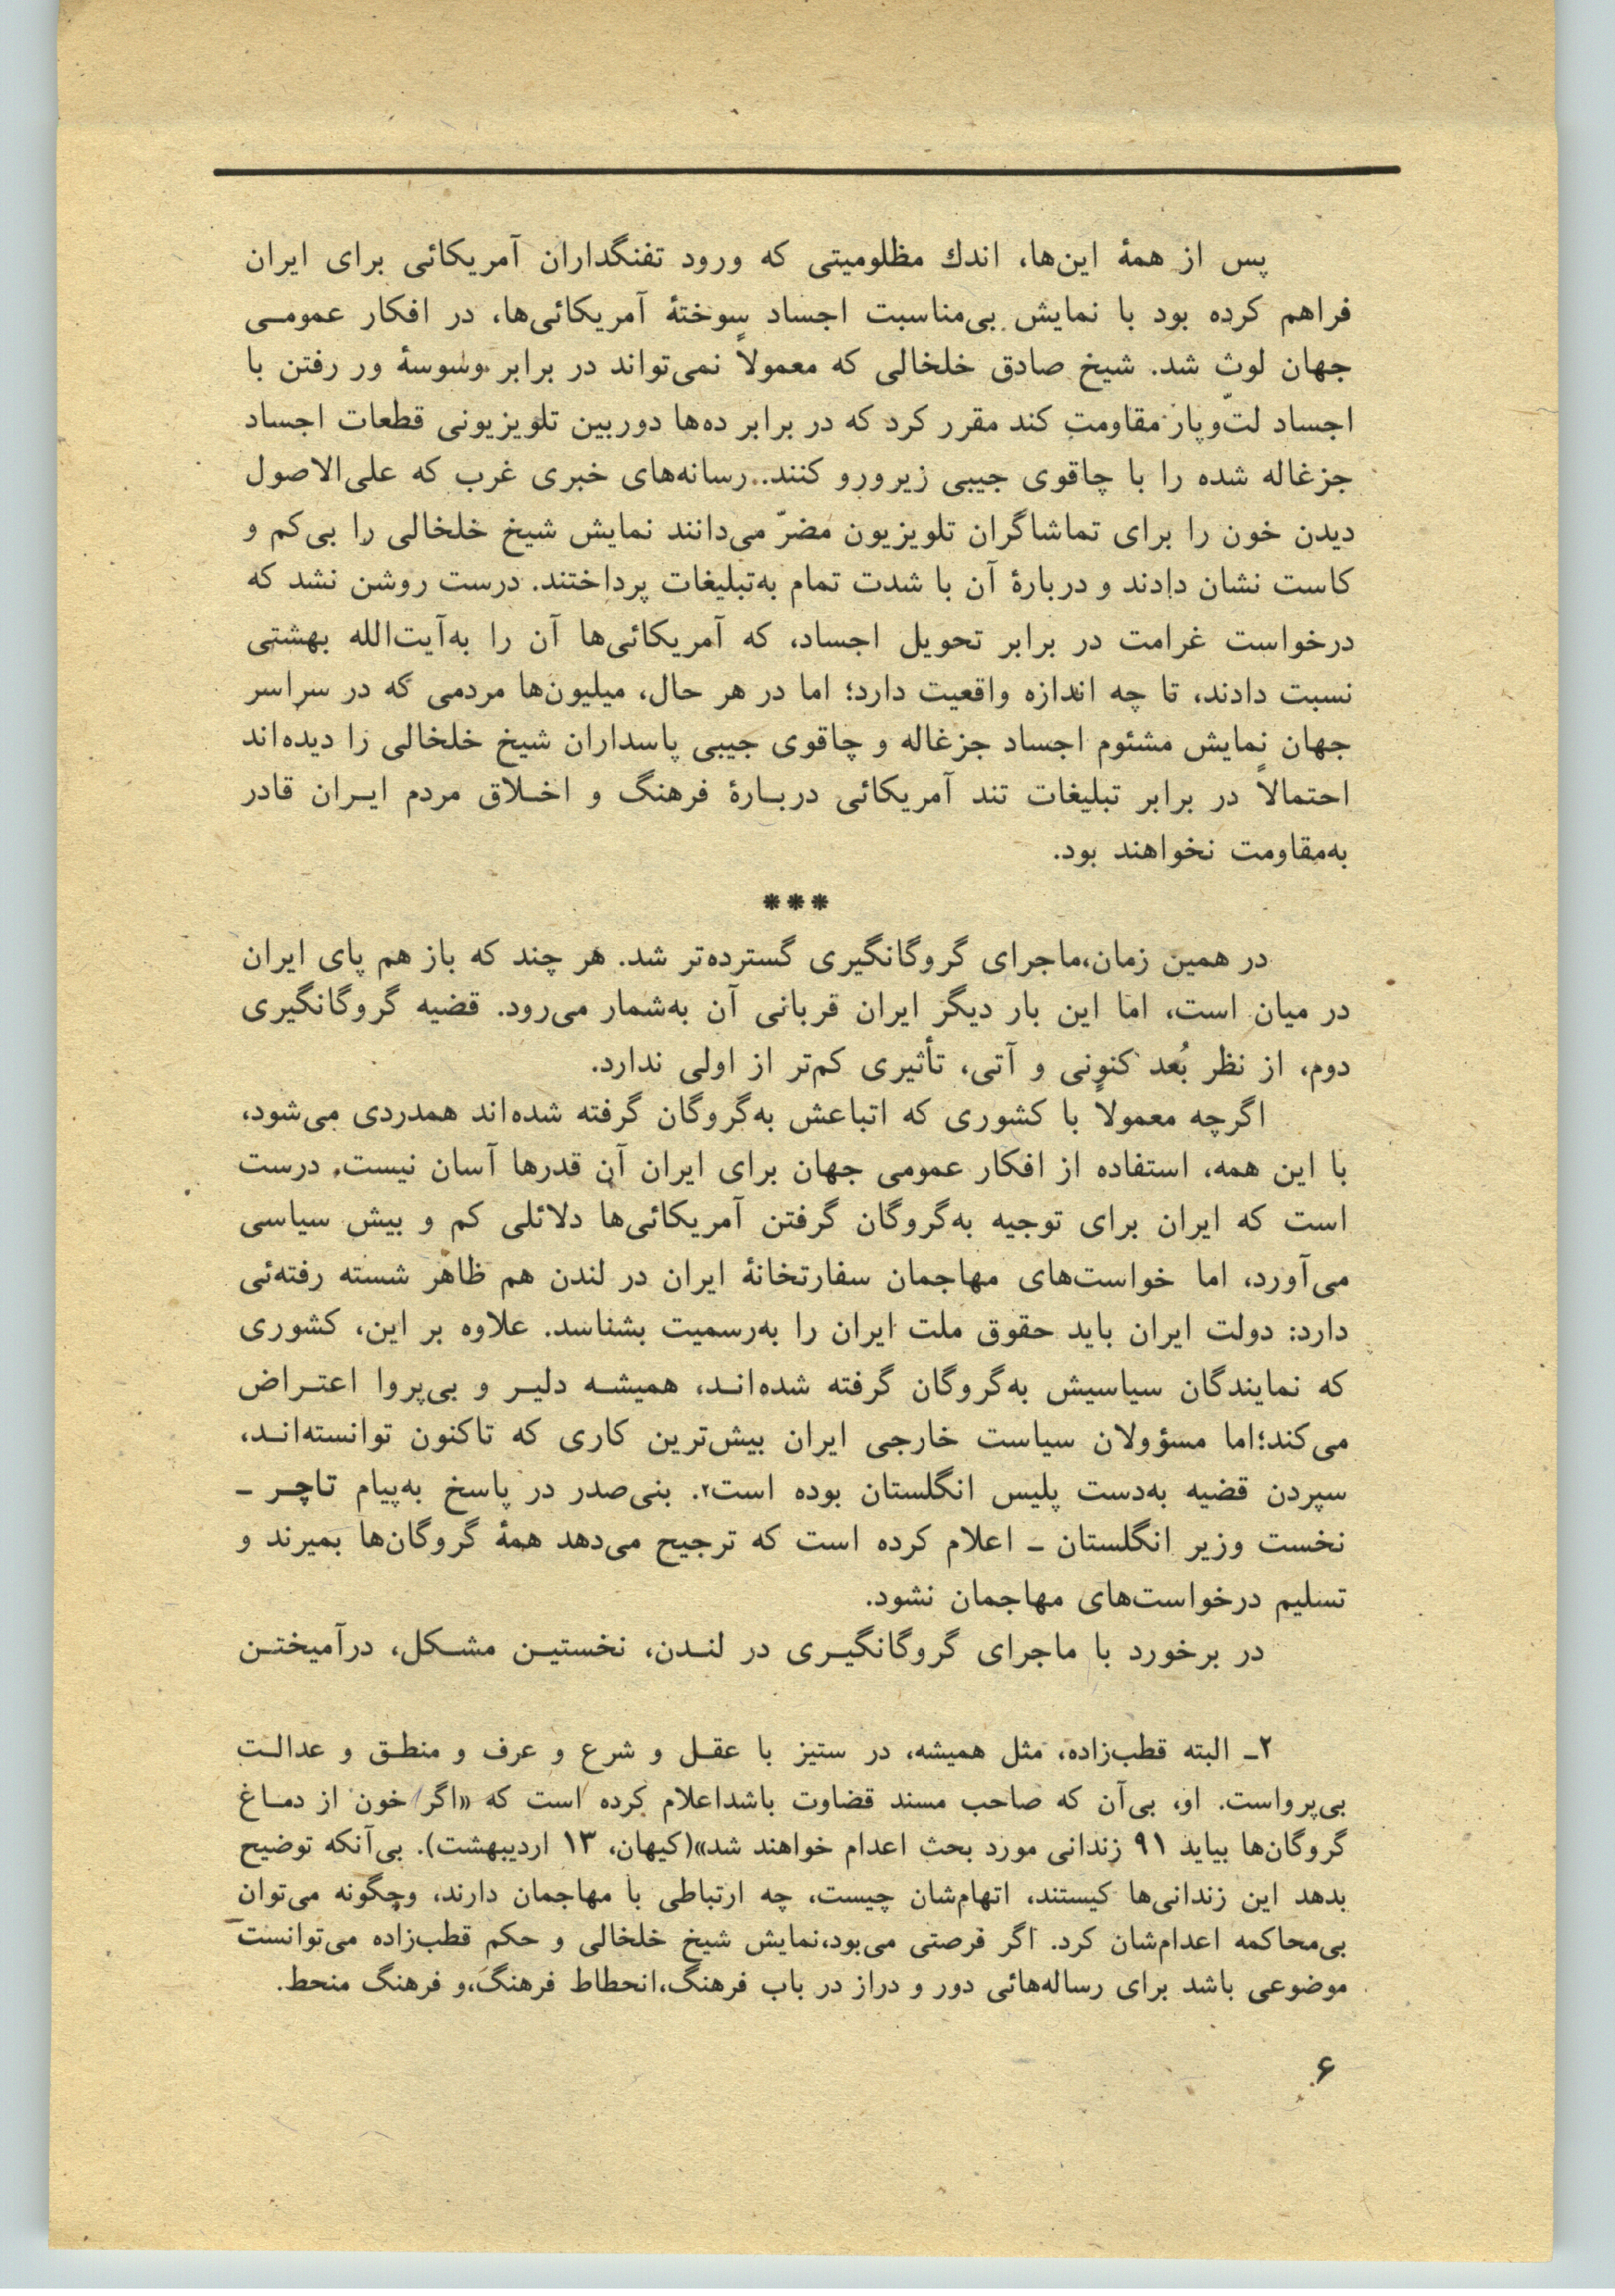 پس از همهٔ این‌ها، اندك مظلومیتی که ورود تفنگداران آمریکائی برای ایران
فراهم کرده بود با نمایش بی‌مناسبت اجساد سوختهٔ آمریکائی‌ها، در افکار عمومـی
جهان لوث شد. شیخ صادق خلخالی که معمولاً نمی‌تواند در برابر وسوسهٔ ور رفتن با
اجساد لتّ‌وپار مقاومت کند مقرر کرد که در برابر ده‌ها دوربین تلویزیونی قطعات اجساد
جزغاله شده را با چاقوی جیبی زیرورو کنند.. رسانه‌های خبری غرب که علی‌الاصول
دیدن خون را برای تماشاگران تلویزیون مضرّ می‌دانند نمایش شیخ خلخالی را بی‌کم و
کاست نشان دادند و دربارهٔ آن با شدت تمام به‌تبلیغات پرداختند. درست روشن نشد که
درخواست غرامت در برابر تحویل اجساد، که آمریکائی‌ها آن را به‌آیت‌الله بهشتی
نسبت دادند، تا چه اندازه واقعیت دارد؛ اما در هر حال، میلیون‌ها مردمی که در سراسر
جهان نمایش مشئوم اجساد جزغاله و چاقوی جیبی پاسداران شیخ خلخالی را دیده‌اند
احتمالاً در برابر تبلیغات تند آمریکائی دربـارهٔ فرهنگ و اخـلاق مردم ایـران قادر
به‌مقاومت نخواهند بود.
***
در همین زمان،ماجرای گروگانگیری گسترده‌تر شد. هر چند که باز هم پای ایران
در میان است، اما این بار دیگر ایران قربانی آن به‌شمار می‌رود. قضیه گروگانگیری
دوم، از نظر بُعد کنونی و آتی، تأثیری کم‌تر از اولی ندارد.
اگرچه معمولاً با کشوری که اتباعش به‌گروگان گرفته شده‌اند همدردی می‌شود،
با این همه، استفاده از افکار عمومی جهان برای ایران آن قدرها آسان نیست. درست
است که ایران برای توجیه به‌گروگان گرفتن آمریکائی‌ها دلائلی کم و بیش سیاسی
می‌آورد، اما خواست‌های مهاجمان سفارتخانهٔ ایران در لندن هم ظاهر شسته رفته‌ئی
دارد: دولت ایران باید حقوق ملت ایران را به‌رسمیت بشناسد. علاوه بر این، کشوری
که نمایندگان سیاسیش به‌گروگان گرفته شده‌انـد، همیشـه دلیـر و بی‌پروا اعتـراض
می‌کند؛اما مسؤولان سیاست خارجی ایران بیش‌ترین کاری که تاکنون توانسته‌انـد،
سپردن قضیه به‌دست پلیس انگلستان بوده است۲. بنی‌صدر در پاسخ به‌پیام تاچـر ـ
نخست وزیر انگلستان ـ اعلام کرده است که ترجیح می‌دهد همهٔ گروگان‌ها بمیرند و
تسلیم درخواست‌های مهاجمان نشود.
در برخورد با ماجرای گروگانگیـری در لنـدن، نخستیـن مشـکل، درآمیختـن
۲ـ البته قطب‌زاده، مثل همیشه، در ستیز با عقـل و شرع و عرف و منطـق و عدالـت
بی‌پرواست. او، بی‌آن که صاحب مسند قضاوت باشداعلام کرده است که «اگر خون از دمـاغ
گروگان‌ها بیاید ۹۱ زندانی مورد بحث اعدام خواهند شد»(کیهان، ۱۳ اردیبهشت). بی‌آنکه توضیح
بدهد این زندانی‌ها کیستند، اتهام‌شان چیست، چه ارتباطی با مهاجمان دارند، وچگونه می‌توان
بی‌محاکمه اعدام‌شان کرد. اگر فرصتی می‌بود،نمایش شیخ خلخالی و حکم قطب‌زاده می‌توانست
موضوعی باشد برای رساله‌هائی دور و دراز در باب فرهنگ،انحطاط فرهنگ،و فرهنگ منحط.
۶